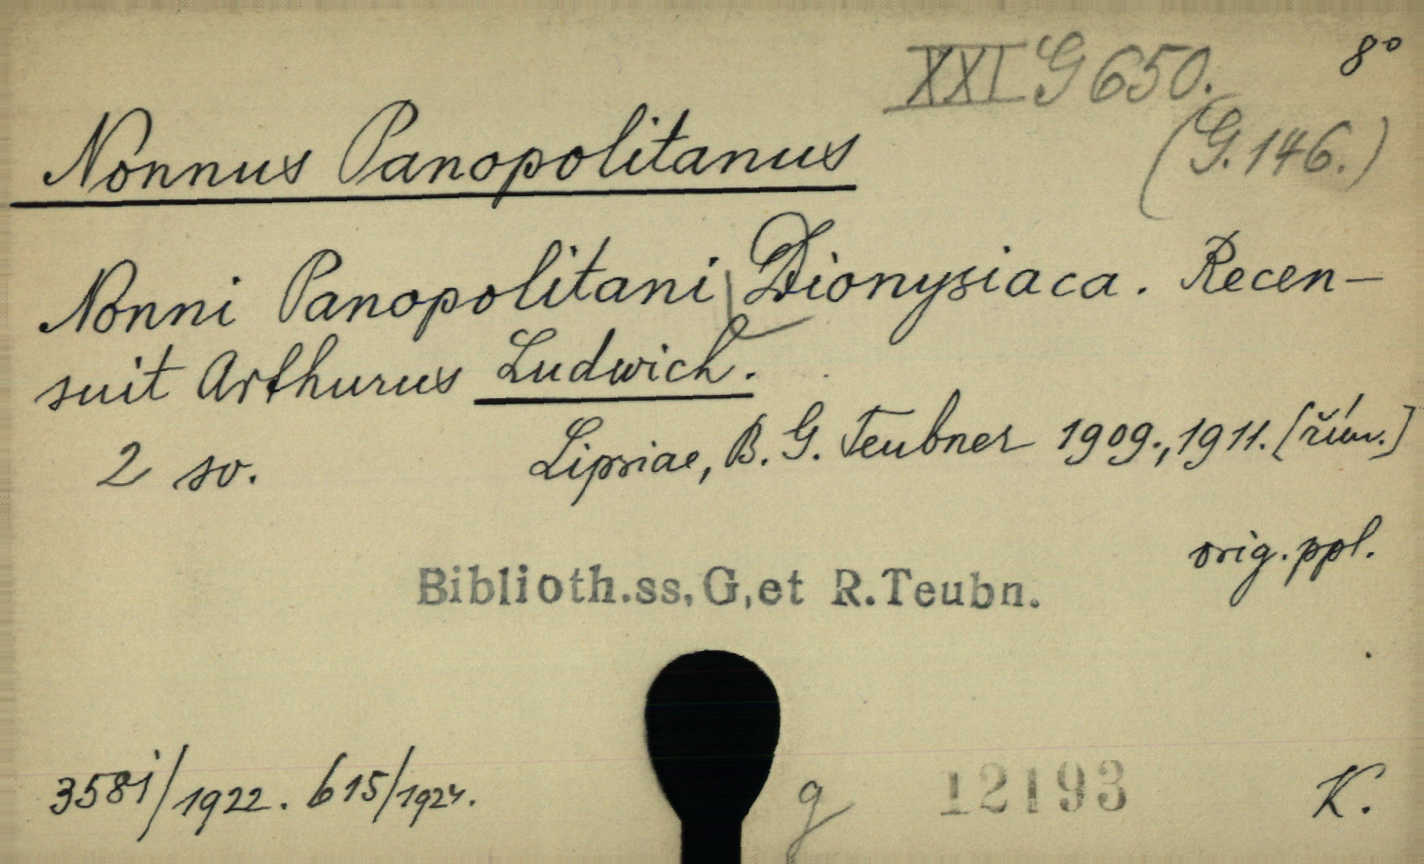 XXI G 650. 8°
(G. 146.)
Nonnus Panopolitanus
Nonni Panopolitani Dionysiaca. Recen-
suit Arthurus Ludwich.
2 sv. Lipsiae, B. G. Teubner 1909., 1911. [řím.]
orig. ppl.
Biblioth.ss,G,et R.Teubn.
3581/1922. 615/1924.
g 12193 K.